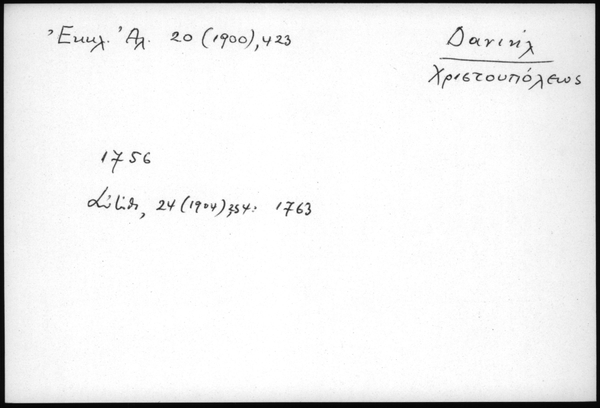 Ἐκκλ. Ἀλ. 20 (1900), 423
Δανιὴλ
Χριστουπόλεως
1756
αὐτόθι, 24 (1904) 354: 1763